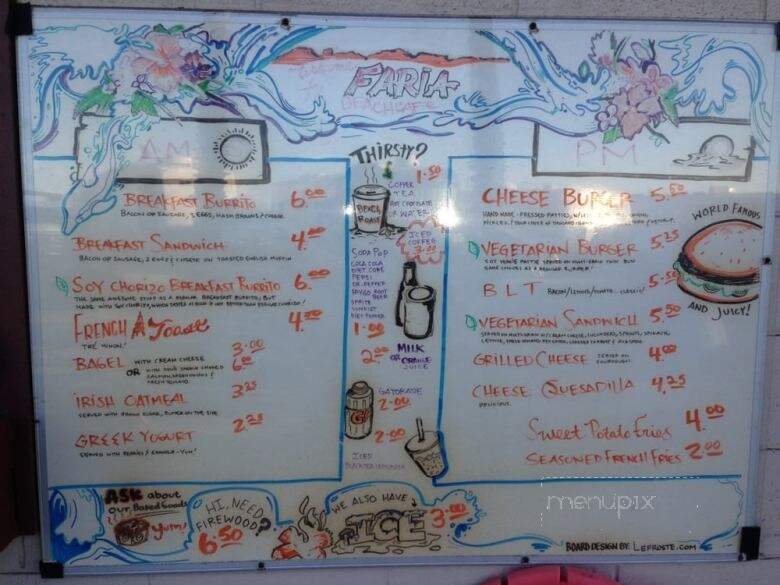 FARIA
BEACH CAFE
AM
BREAKFAST BURRITO 6.00
BACON OR SAUSAGE, 3 EGGS, HASH BROWNS & CHEESE
BREAKFAST SANDWICH 4.00
BACON OR SAUSAGE, 2 EGGS & CHEESE ON TOASTED ENGLISH MUFFIN
SOY CHORIZO BREAKFAST BURRITO 6.00
THE SAME AWESOME STUFF AS A REGULAR BREAKFAST BURRITO, BUT
MADE WITH SOY CHORIZO, WHICH TASTES AS GOOD IF NOT BETTER THAN REGULAR CHORIZO!
FRENCH TOAST 4.00
BAGEL WITH CREAM CHEESE 3.00
OR 6.00
IRISH OATMEAL 3.25
SERVED WITH BROWN SUGAR, BUTTER ON THE SIDE
GREEK YOGURT 2.25
SERVED WITH BERRIES & GRANOLA - YUM!
THIRSTY?
1.50
COFFEE
TEA
HOT CHOCOLATE
OR WATER
BENCH
ROAST
ICED
COFFEE
3.00
SODA POP
COCA COLA
DIET COKE
PEPSI
DR. PEPPER
ROOT
BEER
SPRITE
SUNKIST
DIET PEPPER
1.00
2.00
MILK
OR ORANGE
JUICE
GATORADE
2.00
G
2.00
ICED
PM
CHEESE BURGER 5.50
HAND MADE - PRESSED PATTIES,
VEGETARIAN BURGER 5.25
BLT BACON/LEMONS/TOMATO - CLASSIC! 5.50
VEGETARIAN SANDWICH 5.50
GRILLED CHEESE SERVED ON
SOURDOUGH 4.00
CHEESE QUESADILLA 4.25
DELICIOUS.
Sweet Potato Fries 4.00
SEASONED FRENCH FRIES 2.00
WORLD FAMOUS
AND JUICY!
ASK about
our Baked Goods
yum!
HI, NEED
FIREWOOD?
6.50
WE ALSO HAVE
ICE 3.00
menupix
BOARD DESIGN BY LEFROSTE.COM